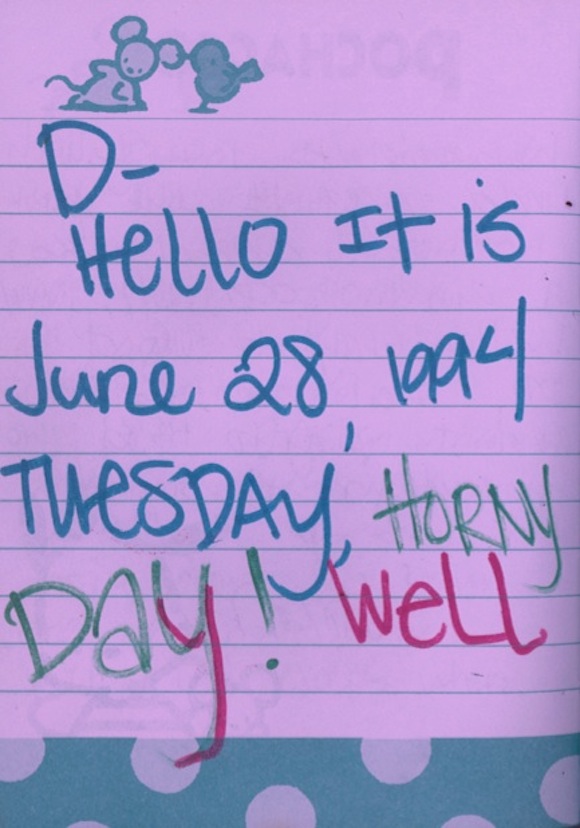 D-
Hello It is
June 28, 1994
TUESDAY, HORNY
DAY! WELL